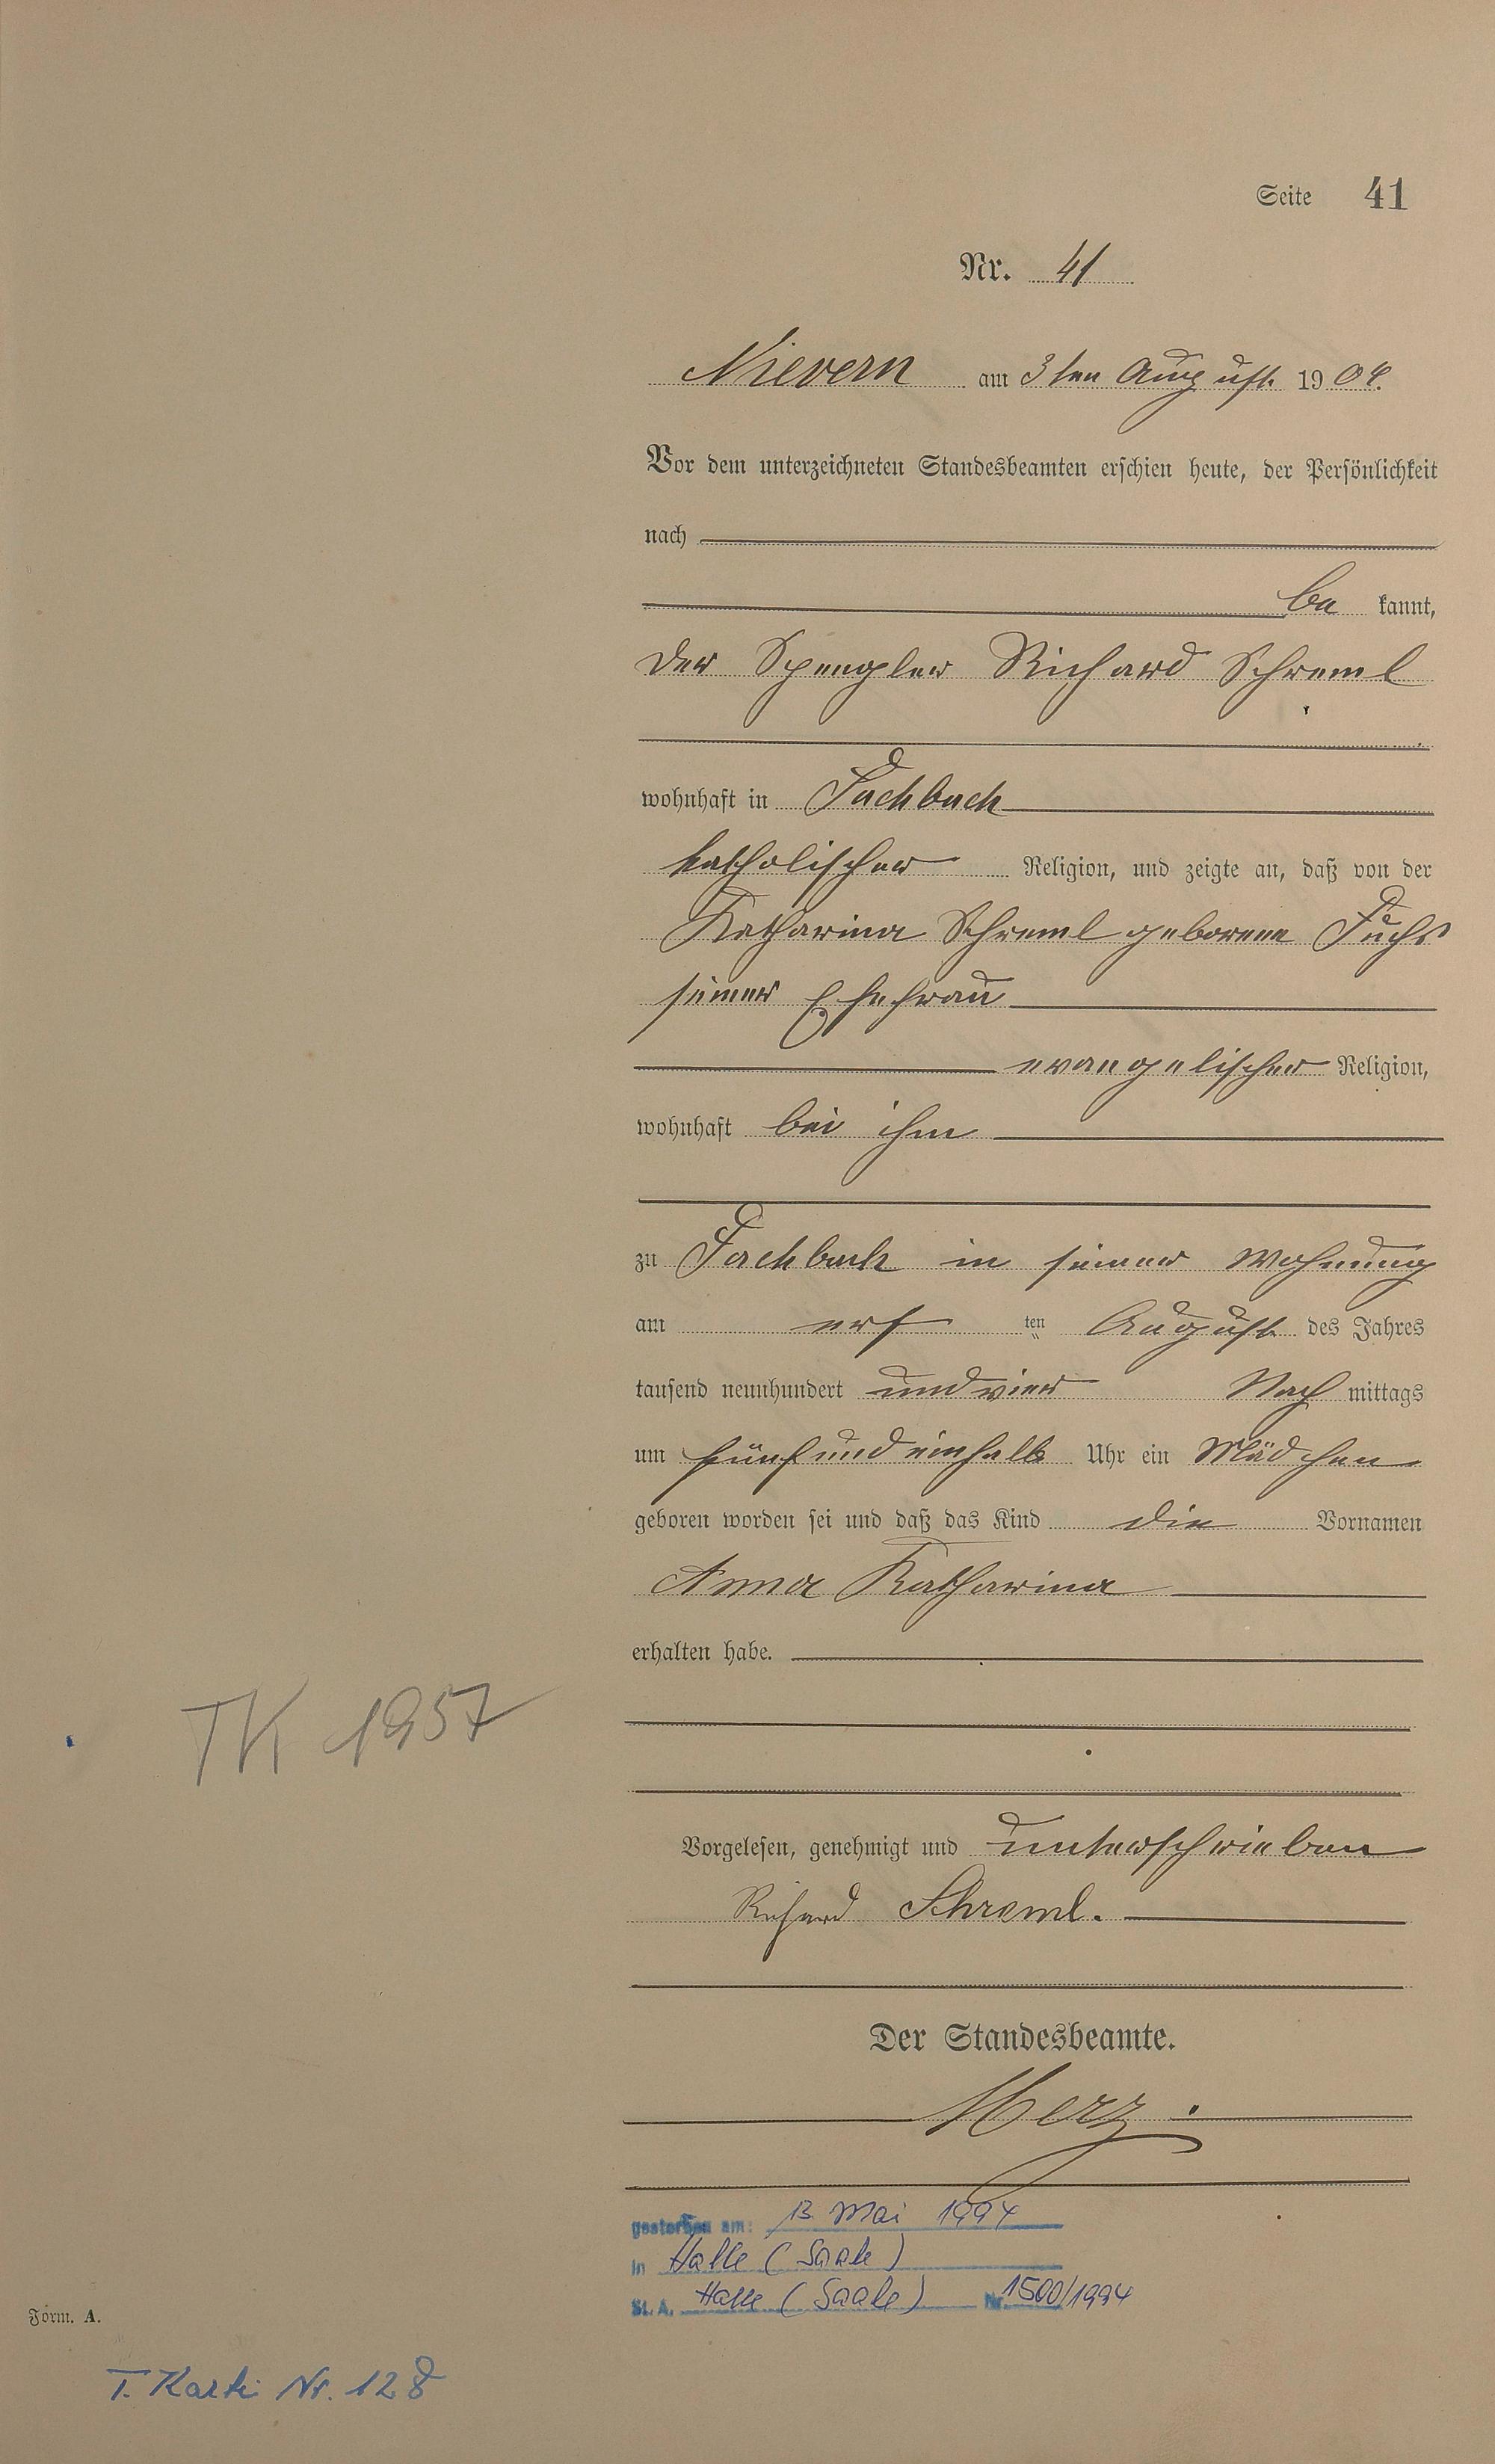 Seite 41
Nr. 41
Nievern am 3ten August 1904.
Vor dem unterzeichneten Standesbeamten erschien heute, der Persönlichkeit
nach
be kannt,
der Spengler Richard Schreml
wohnhaft in Fachbach
katholischer Religion, und zeigte an, daß von der
Katharina Schreml geborene Fuchs
seiner Ehefrau
evangelischer Religion,
wohnhaft bei ihm
zu Fachbach in seiner Wohnung
am ersten August des Jahres
tausend neunhundert und vier Nach mittags
um fünf und einhalb Uhr ein Mädchen
geboren worden sei und daß das Kind die Vornamen
Anna Katharina
erhalten habe.
TK 1957
Vorgelesen, genehmigt und unterschrieben
Richard Schreml.
Der Standesbeamte.
Merz.
gestorben am: 13. Mai 1994
in Halle (Saale)
St. A. Halle (Saale) Nr. 1500/1994
Form. A.
T. Kartei Nr. 128